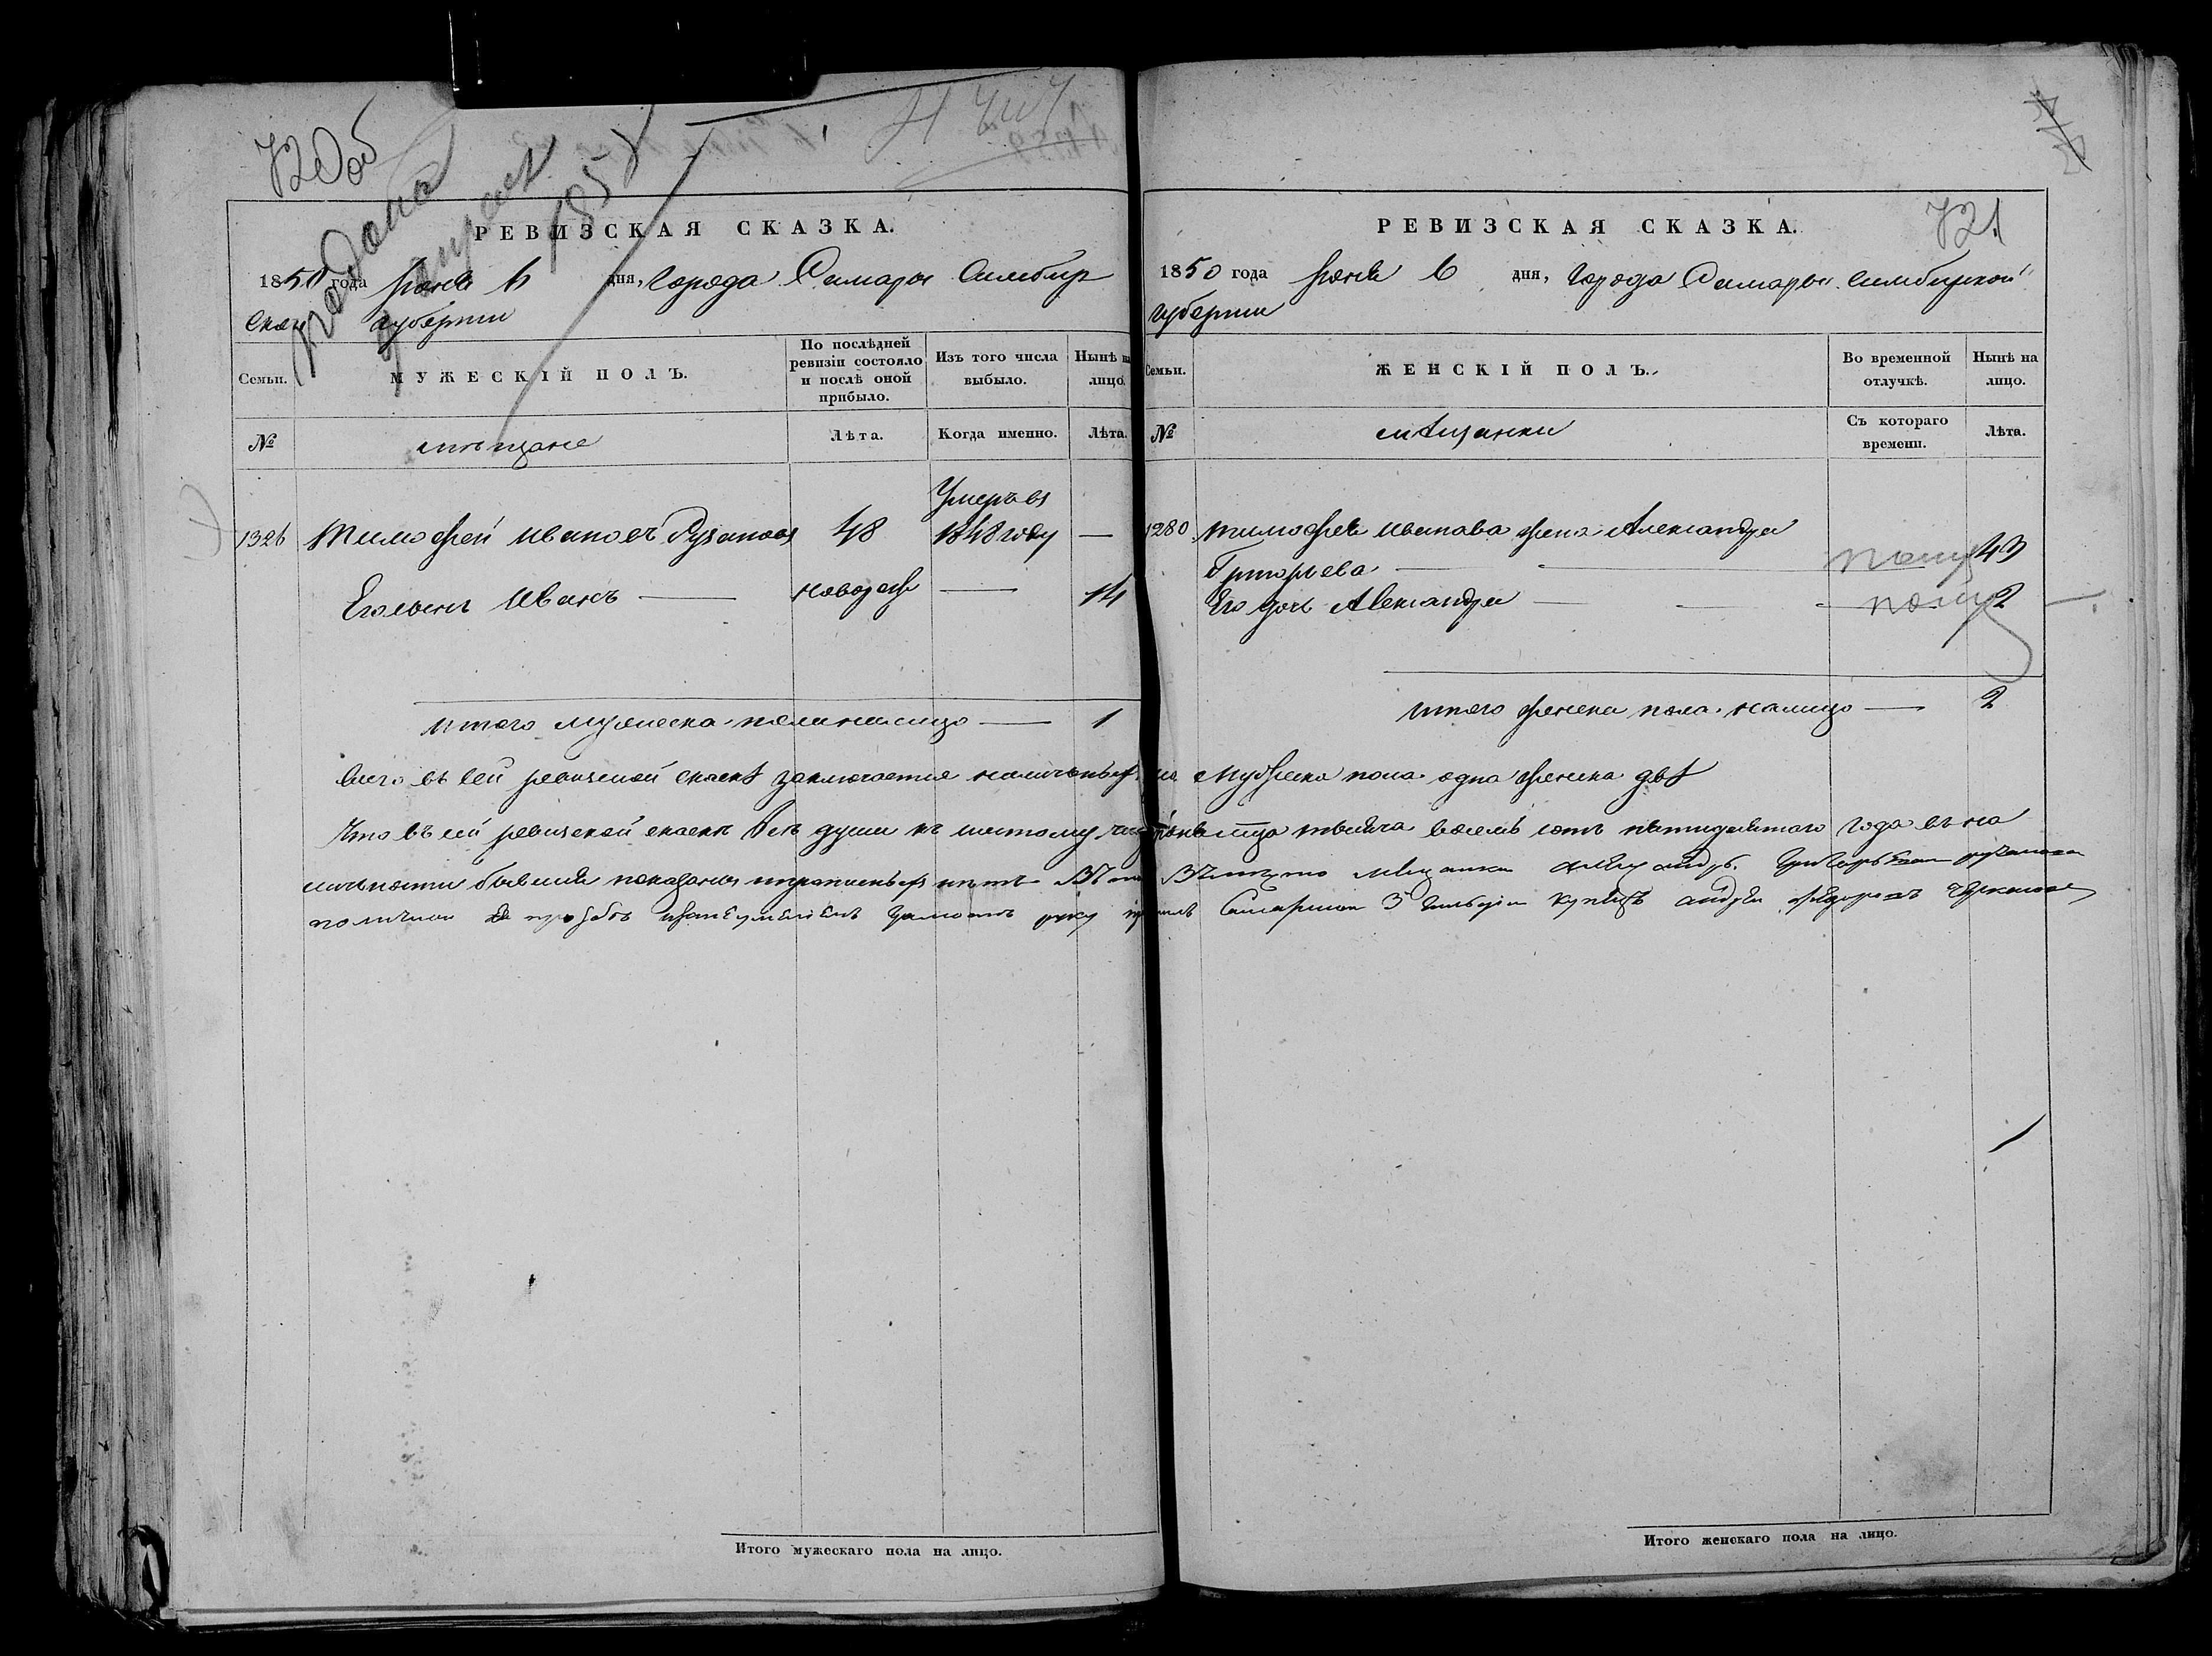 720об
РЕВИЗСКАЯ СКАЗКА.
1850 года Июня 6 дня, Города Самары Симбир
ской губернии
Семьи.
МУЖЕСКІЙ ПОЛЪ.
По послѣдней ревизіи состояло и послѣ оной прибыло.
Изъ того числа выбыло.
Нынѣ на лицо.
№
мѣщане
Лѣта.
Когда именно.
Лѣта.
Умеръ въ
1326 Тимофей Ивановъ Рузановъ 48 1848 году —
Его сынъ Иванъ — новорож — 14
итого мужеска пола налицо — 1
721
РЕВИЗСКАЯ СКАЗКА.
1850 года Июня 6 дня, Города Самары Симбирской
губернии
Семьи.
ЖЕНСКІЙ ПОЛЪ.
Во временной отлучкѣ.
Нынѣ на лицо.
№
мѣщанки
Съ котораго времени.
Лѣта.
1280 Тимофея Иванова жена Александра
Григорьева — 43
Его дочь Александра — 2
итого женска пола налицо — 2
Всего въ сей ревизской сказкѣ заключается наличныхъ мужеска пола одна женска двѣ
Что въ сей ревизской сказкѣ всѣ души къ шестому число Июня тысяча восемь сотъ пятидесятаго года въ на
личности бывшия показаны и прописныхъ нѣтъ мещанка
руку Самарской 3 гильдіи купецъ
Итого мужескаго пола на лицо.
Итого женскаго пола на лицо.